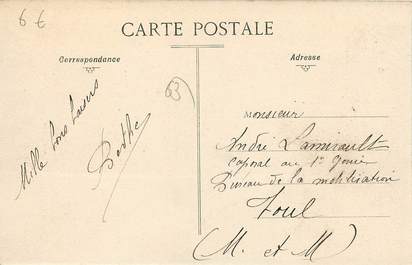 6 €
CARTE POSTALE
Correspondance
Adresse
63
Mille bons baisers
Berthe
Monsieur
André Lamirault
caporal au 1er Génie
Bureau de la mobilisation
Toul
(M. et M)